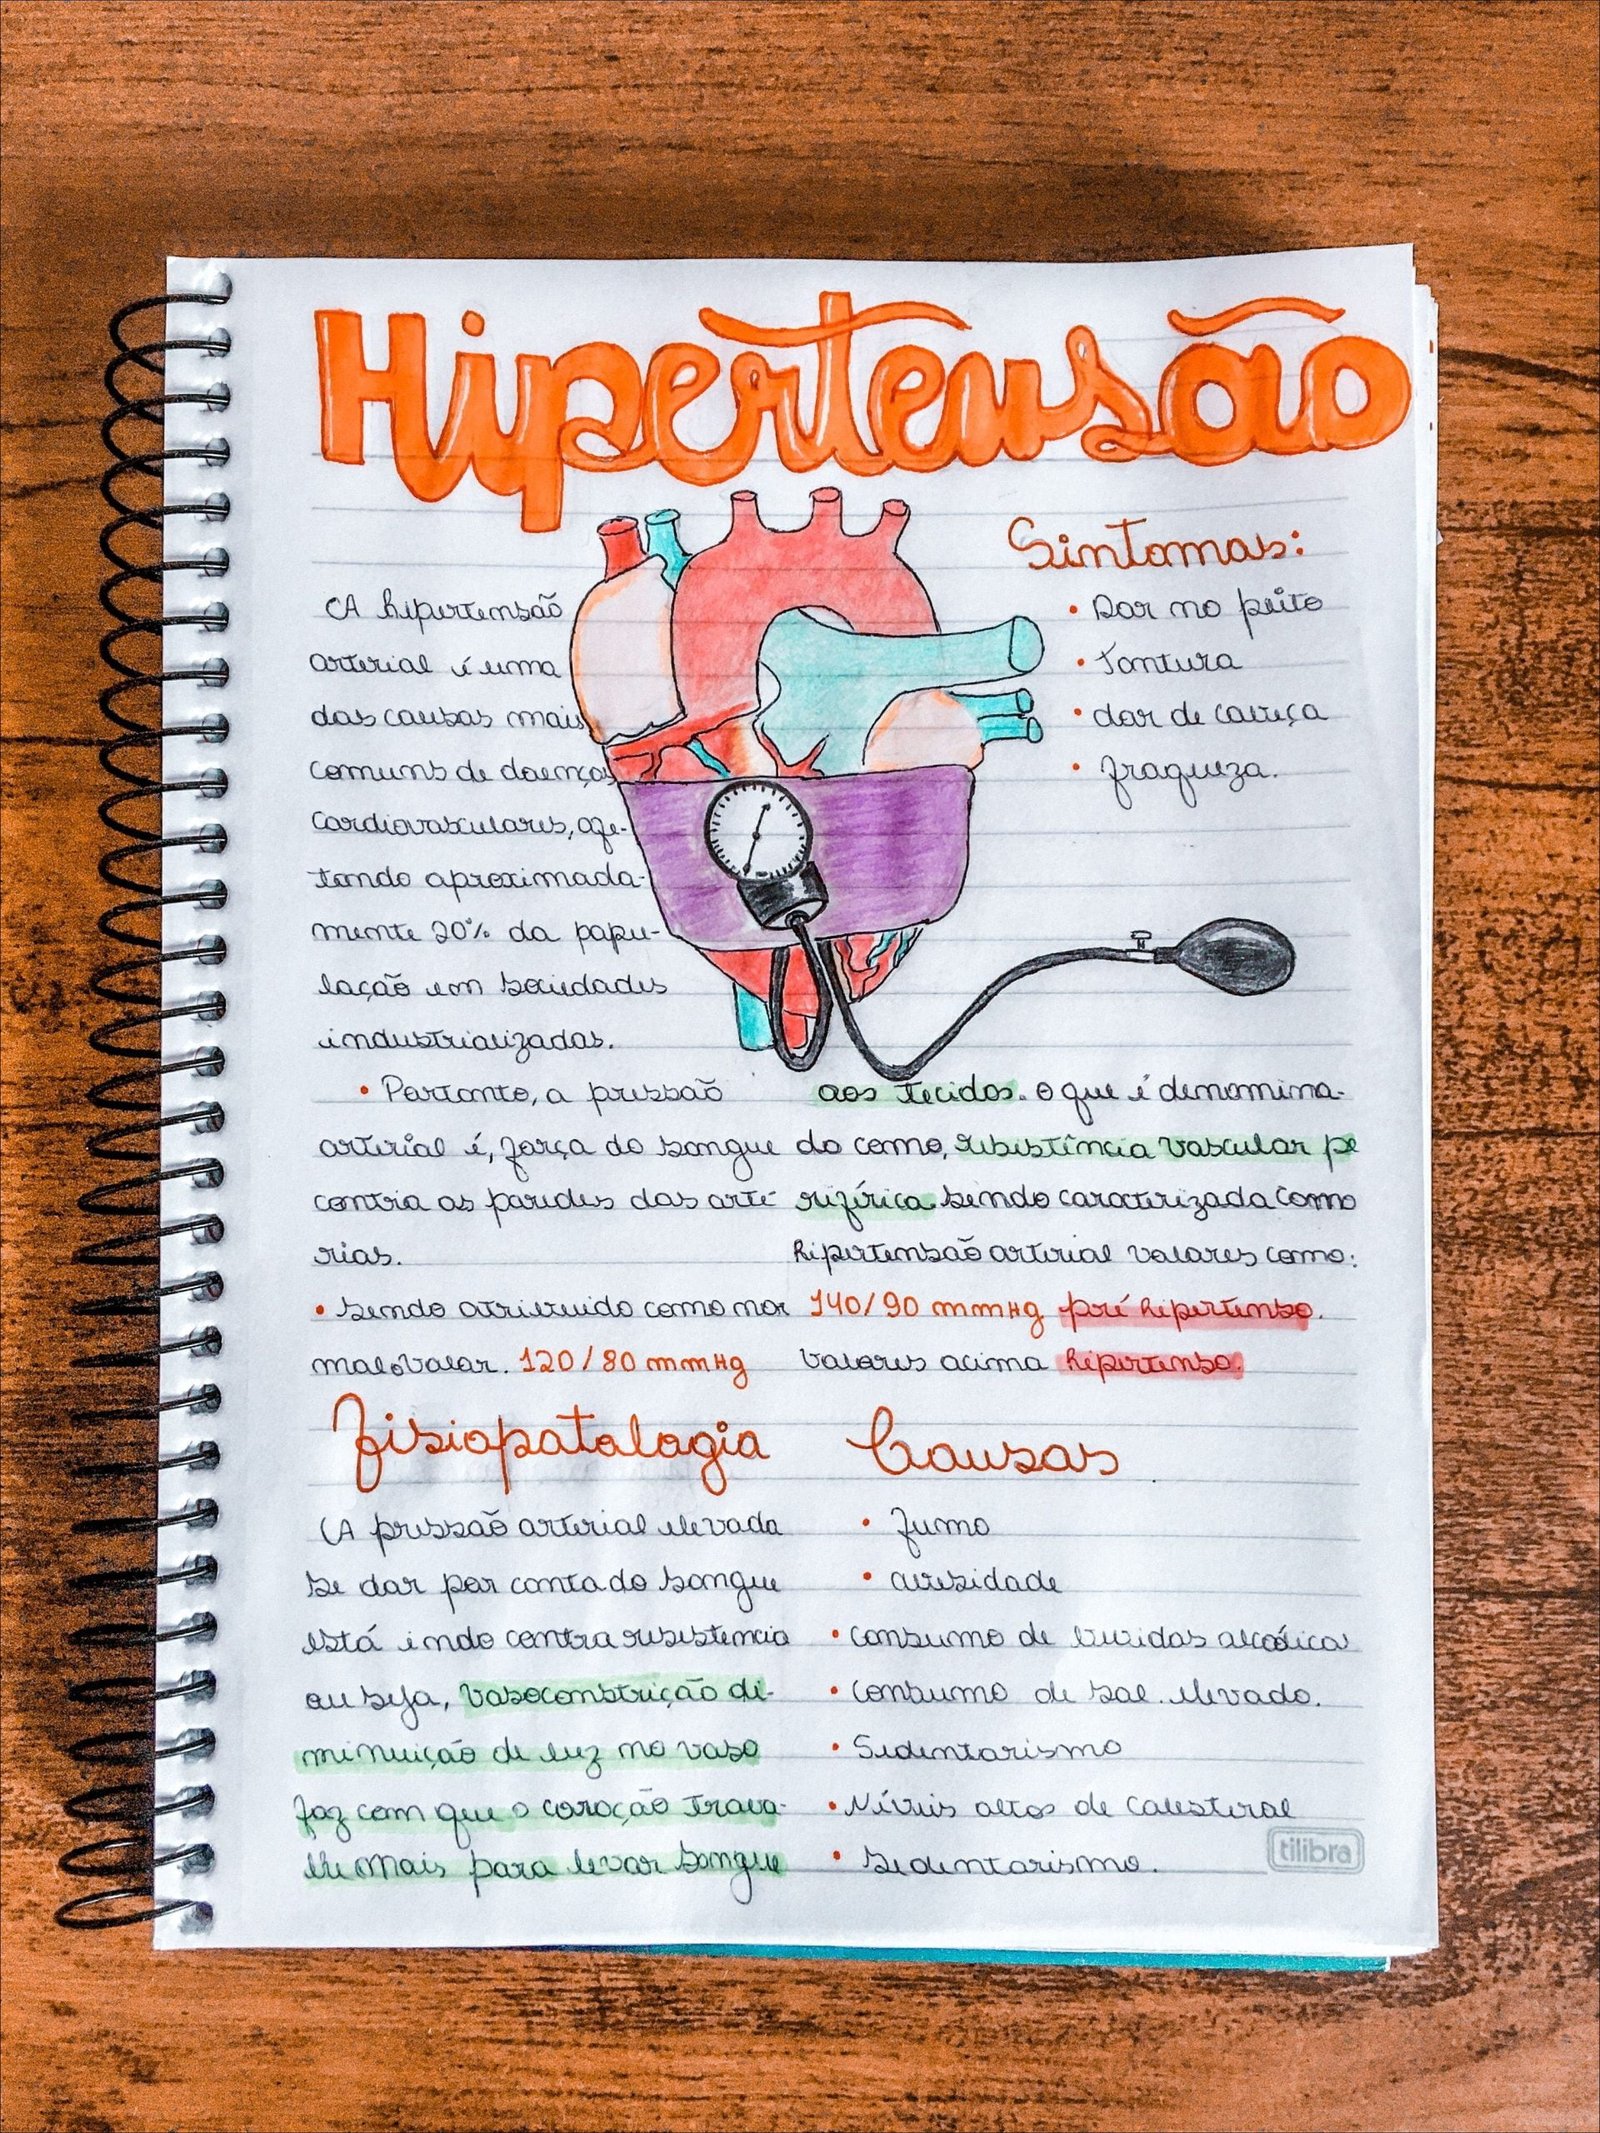 Hipertensão
A hipertensão
arterial é uma
das causas mais
comuns de doenças
cardiovasculares, afe-
tando aproximada-
mente 20% da popu-
lação em sociedades
industrializadas.
• Portanto, a pressão
arterial é, força do sangue
contra as paredes das arté
rias.
• Sendo atribuido como nor
mal o valor. 120/80 mmHg
Sintomas:
• Dor no peito
• Tontura
• dor de cabeça
• fraqueza.
Fisiopatologia
A pressão arterial elevada
se dar por conta do sangue
está indo contra resistencia
ou seja, vasoconstrição di-
minuição de luz no vaso
faz com que o coração traba-
lhe mais para levar sangue
aos tecidos. O que é denomina-
do como, resistência vascular pe
riférica. Sendo caracterizada como
hipertensão arterial valores como:
140/90 mmHg pré hipertenso.
valores acima hipertenso.
Causas
• Fumo
• obesidade
• Consumo de bebidas alcoólicas
• Consumo de sal elevado.
• Sedentarismo
• Níveis altos de Colesterol
• Sedentarismo.
tilibra